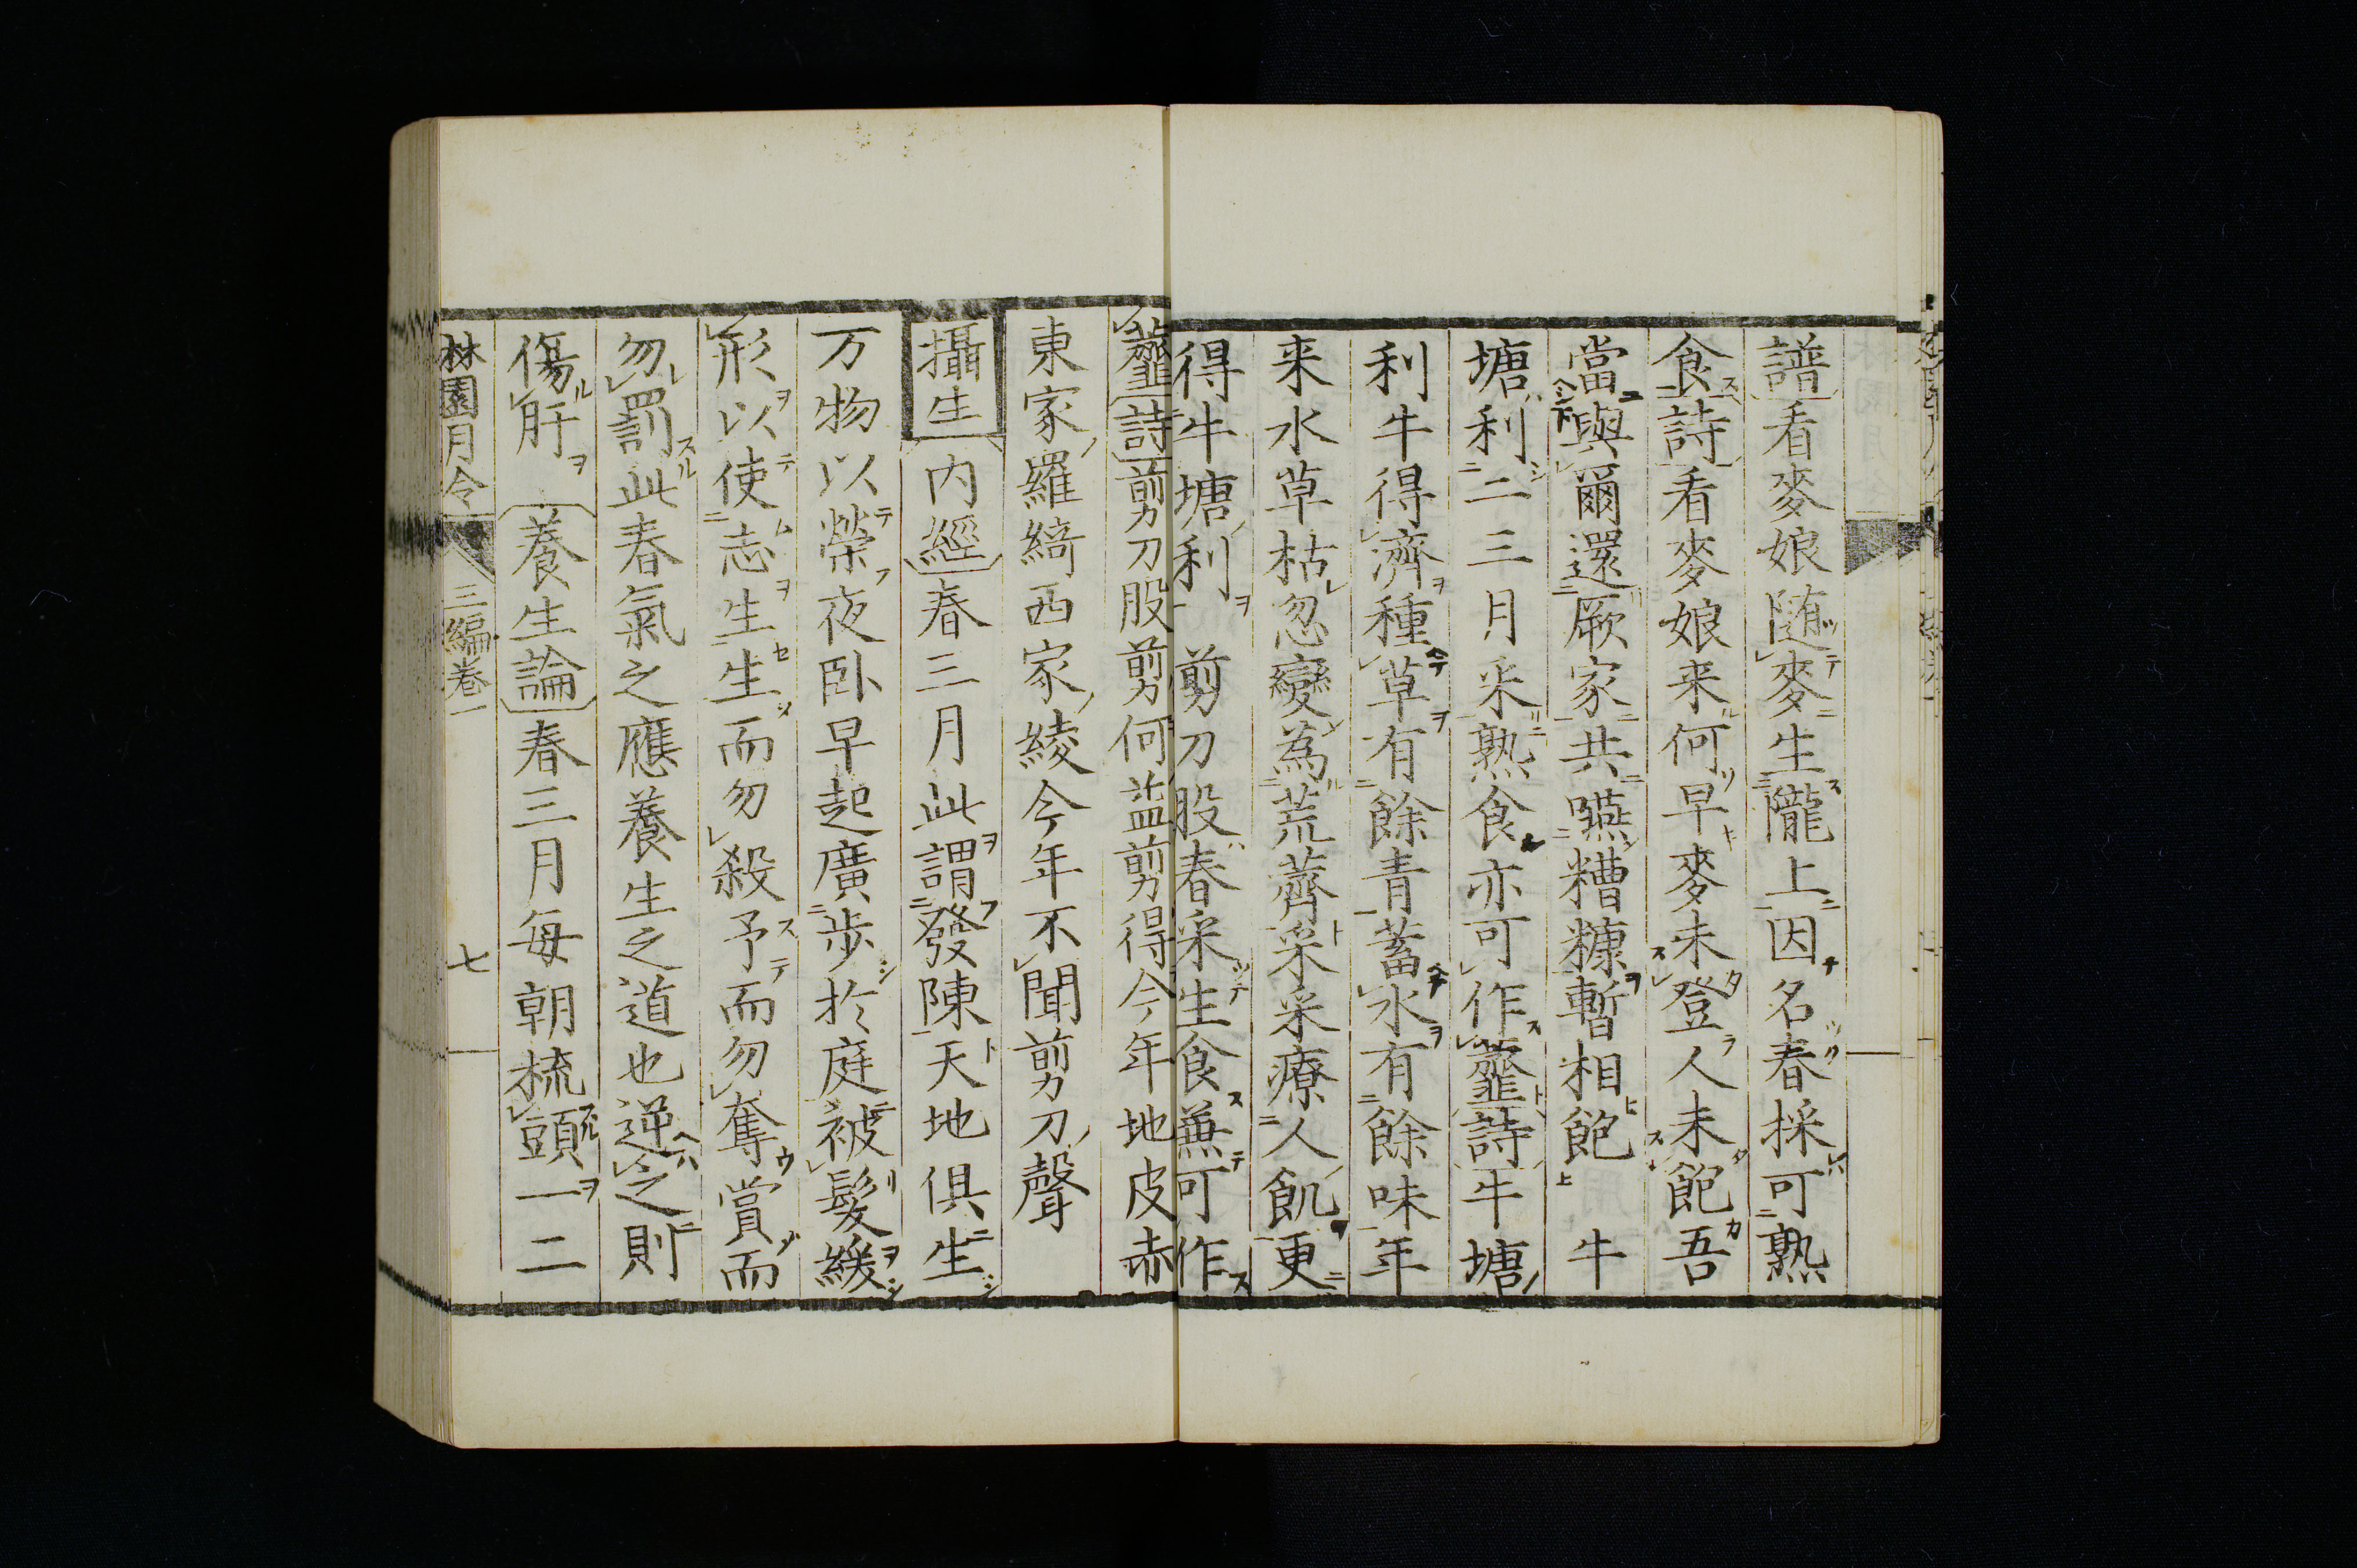 譜看麥娘随麥生隴上因名春採可熟
食詩看麥娘来何早麥未登人未飽吾
當與爾還厥家共嚥糟糠暫相飽　牛
塘利二三月采熟食亦可作虀詩牛塘
利牛得濟種草有餘青蓄水有餘味年
来水草枯忽變為荒薺采采療人飢更
得牛塘利　剪刀股春采生食兼可作
虀詩剪刀股剪何益剪得今年地皮赤
東家羅綺西家綾今年不聞剪刀聲
攝生　内經春三月此謂發陳天地俱生
万物以榮夜卧早起廣歩於庭被髮緩
形以使志生生而勿殺予而勿奪賞而
勿罰此春氣之應養生之道也逆之則
傷肝　養生論春三月毎朝梳頭一二
林園月令　三編巻一　七